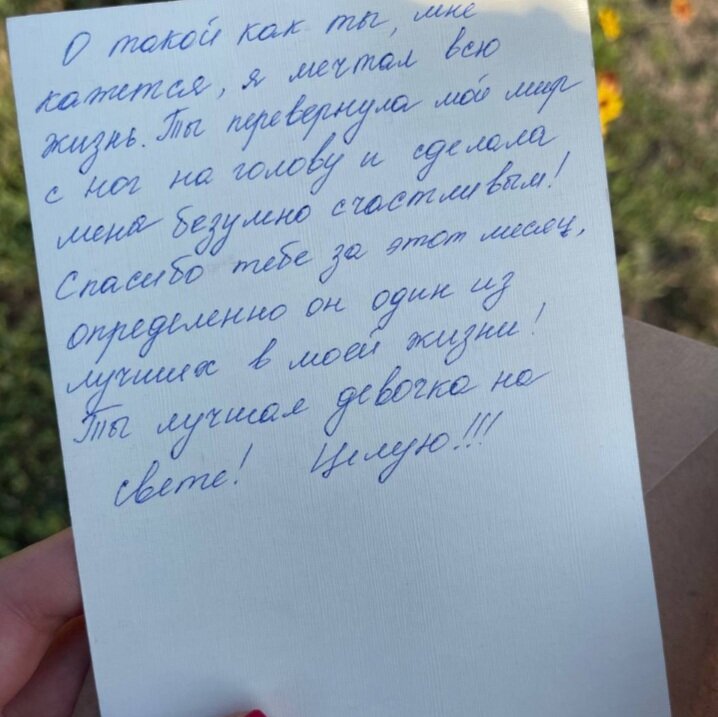 О такой как ты, мне
кажется, я мечтал всю
жизнь. Ты перевернула мой мир
с ног на голову и сделала
меня безумно счастливым!
Спасибо тебе за этот месяц,
определенно он один из
лучших в моей жизни!
Ты лучшая девочка на
свете! Целую!!!